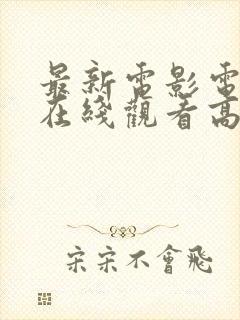 最新電影電
在綫觀看高
宋宋不會飛